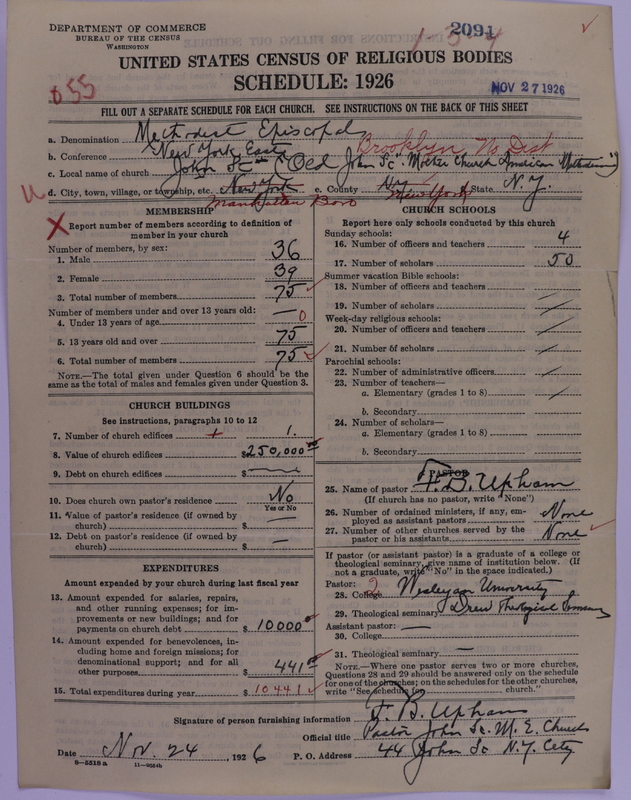 DEPARTMENT OF COMMERCE
BUREAU OF THE CENSUS
WASHINGTON
2091
UNITED STATES CENSUS OF RELIGIOUS BODIES
SCHEDULE: 1926
NOV 27 1926
055
FILL OUT A SEPARATE SCHEDULE FOR EACH CHURCH. SEE INSTRUCTIONS ON THE BACK OF THIS SHEET
a. Denomination Methodist Episcopal
b. Conference New York East Brooklyn No Dist
c. Local name of church John St. "Old John St." Mother Church American Methodism
d. City, town, village, or township, etc. New York e. County NY State N. Y.
Manhattan Boro New York
MEMBERSHIP
Report number of members according to definition of member in your church
Number of members, by sex:
1. Male 36
2. Female 39
3. Total number of members 75
Number of members under and over 13 years old:
4. Under 13 years of age — 0
5. 13 years old and over 75
6. Total number of members 75
NOTE.—The total given under Question 6 should be the
same as the total of males and females given under Question 3.
CHURCH BUILDINGS
See instructions, paragraphs 10 to 12
7. Number of church edifices 1.
8. Value of church edifices $250,000 00
9. Debt on church edifices $ —
10. Does church own pastor's residence No
Yes or No
11. Value of pastor's residence (if owned by
church) $ —
12. Debt on pastor's residence (if owned by
church) $ —
EXPENDITURES
Amount expended by your church during last fiscal year
13. Amount expended for salaries, repairs,
and other running expenses; for im-
provements or new buildings; and for
payments on church debt $ 10000
14. Amount expended for benevolences, in-
cluding home and foreign missions; for
denominational support; and for all
other purposes $ 441 00
15. Total expenditures during year $ 10441
CHURCH SCHOOLS
Report here only schools conducted by this church
Sunday schools:
16. Number of officers and teachers 4
17. Number of scholars 50
Summer vacation Bible schools:
18. Number of officers and teachers
19. Number of scholars
Week-day religious schools:
20. Number of officers and teachers
21. Number of scholars
Parochial schools:
22. Number of administrative officers
23. Number of teachers—
a. Elementary (grades 1 to 8)
b. Secondary
24. Number of scholars—
a. Elementary (grades 1 to 8)
b. Secondary
PASTOR
25. Name of pastor F. B. Upham
(If church has no pastor, write "None")
26. Number of ordained ministers, if any, em-
ployed as assistant pastors None
27. Number of other churches served by the
pastor or his assistants None
If pastor (or assistant pastor) is a graduate of a college or
theological seminary, give name of institution below. (If
not a graduate, write "No" in the space indicated.)
Pastor:
28. College 2 Wesleyan University
29. Theological seminary Drew Theological Seminary
Assistant pastor: —
30. College
31. Theological seminary —
NOTE.—Where one pastor serves two or more churches,
Questions 28 and 29 should be answered only on the schedule
for one of the churches; on the schedules for the other churches,
write "See schedule for church."
Signature of person furnishing information F. B. Upham
Official title Pastor John St. M. E. Church
Date Nov. 24, 1926 P. O. Address 44 John St N.Y. City
8—5518 a 11—9554b